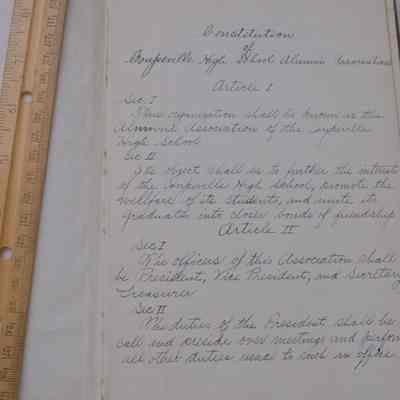 Constitution
of
High School Alumni Association
Article I
Sec. I
This organization shall be known as the
Alumni Association of the
High School
Sec II
Its object shall be to further the interests
of the High School, promote the
welfare of its students, and unite its
graduates into closer bonds of friendship
Article II
Sec I
The officers of this Association shall
be President, Vice President, and Secretary
Treasurer
Sec. II
The duties of the President shall be
call and preside over meetings and perform
all other duties usual to such an office.